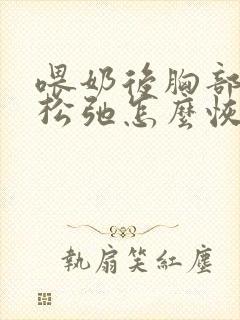 喂奶後胸部
松弛怎麼恢
執扇笑紅塵